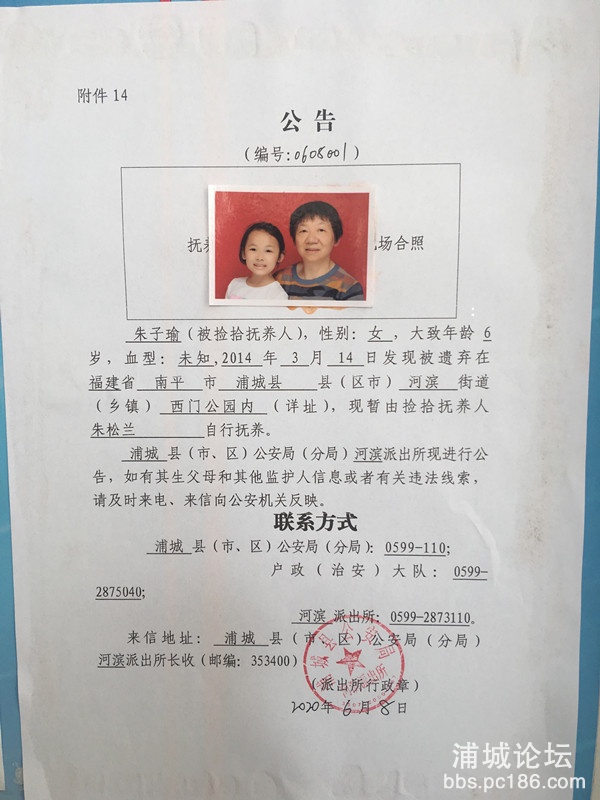 附件 14
公告
(编号:0608001)
抚养
场合照
朱子瑜(被捡拾抚养人),性别:女,大致年龄 6
岁,血型:未知,2014 年 3 月 14 日发现被遗弃在
福建省 南平 市 浦城县 县(区市)河滨 街道
(乡镇)西门公园内(详址),现暂由捡拾抚养人
朱松兰 自行抚养。
浦城 县(市、区)公安局(分局)河滨派出所现进行公
告,如有其生父母和其他监护人信息或者有关违法线索,
请及时来电、来信向公安机关反映。
联系方式
浦城 县(市、区)公安局(分局):0599-110;
户政(治安)大队:0599-
2875040;
河滨 派出所:0599-2873110。
来信地址:浦城 县(市、区)公安局(分局)
河滨派出所长收(邮编:353400)
(派出所行政章)
2020年 6 月 8 日
浦城论坛
bbs.pc186.com